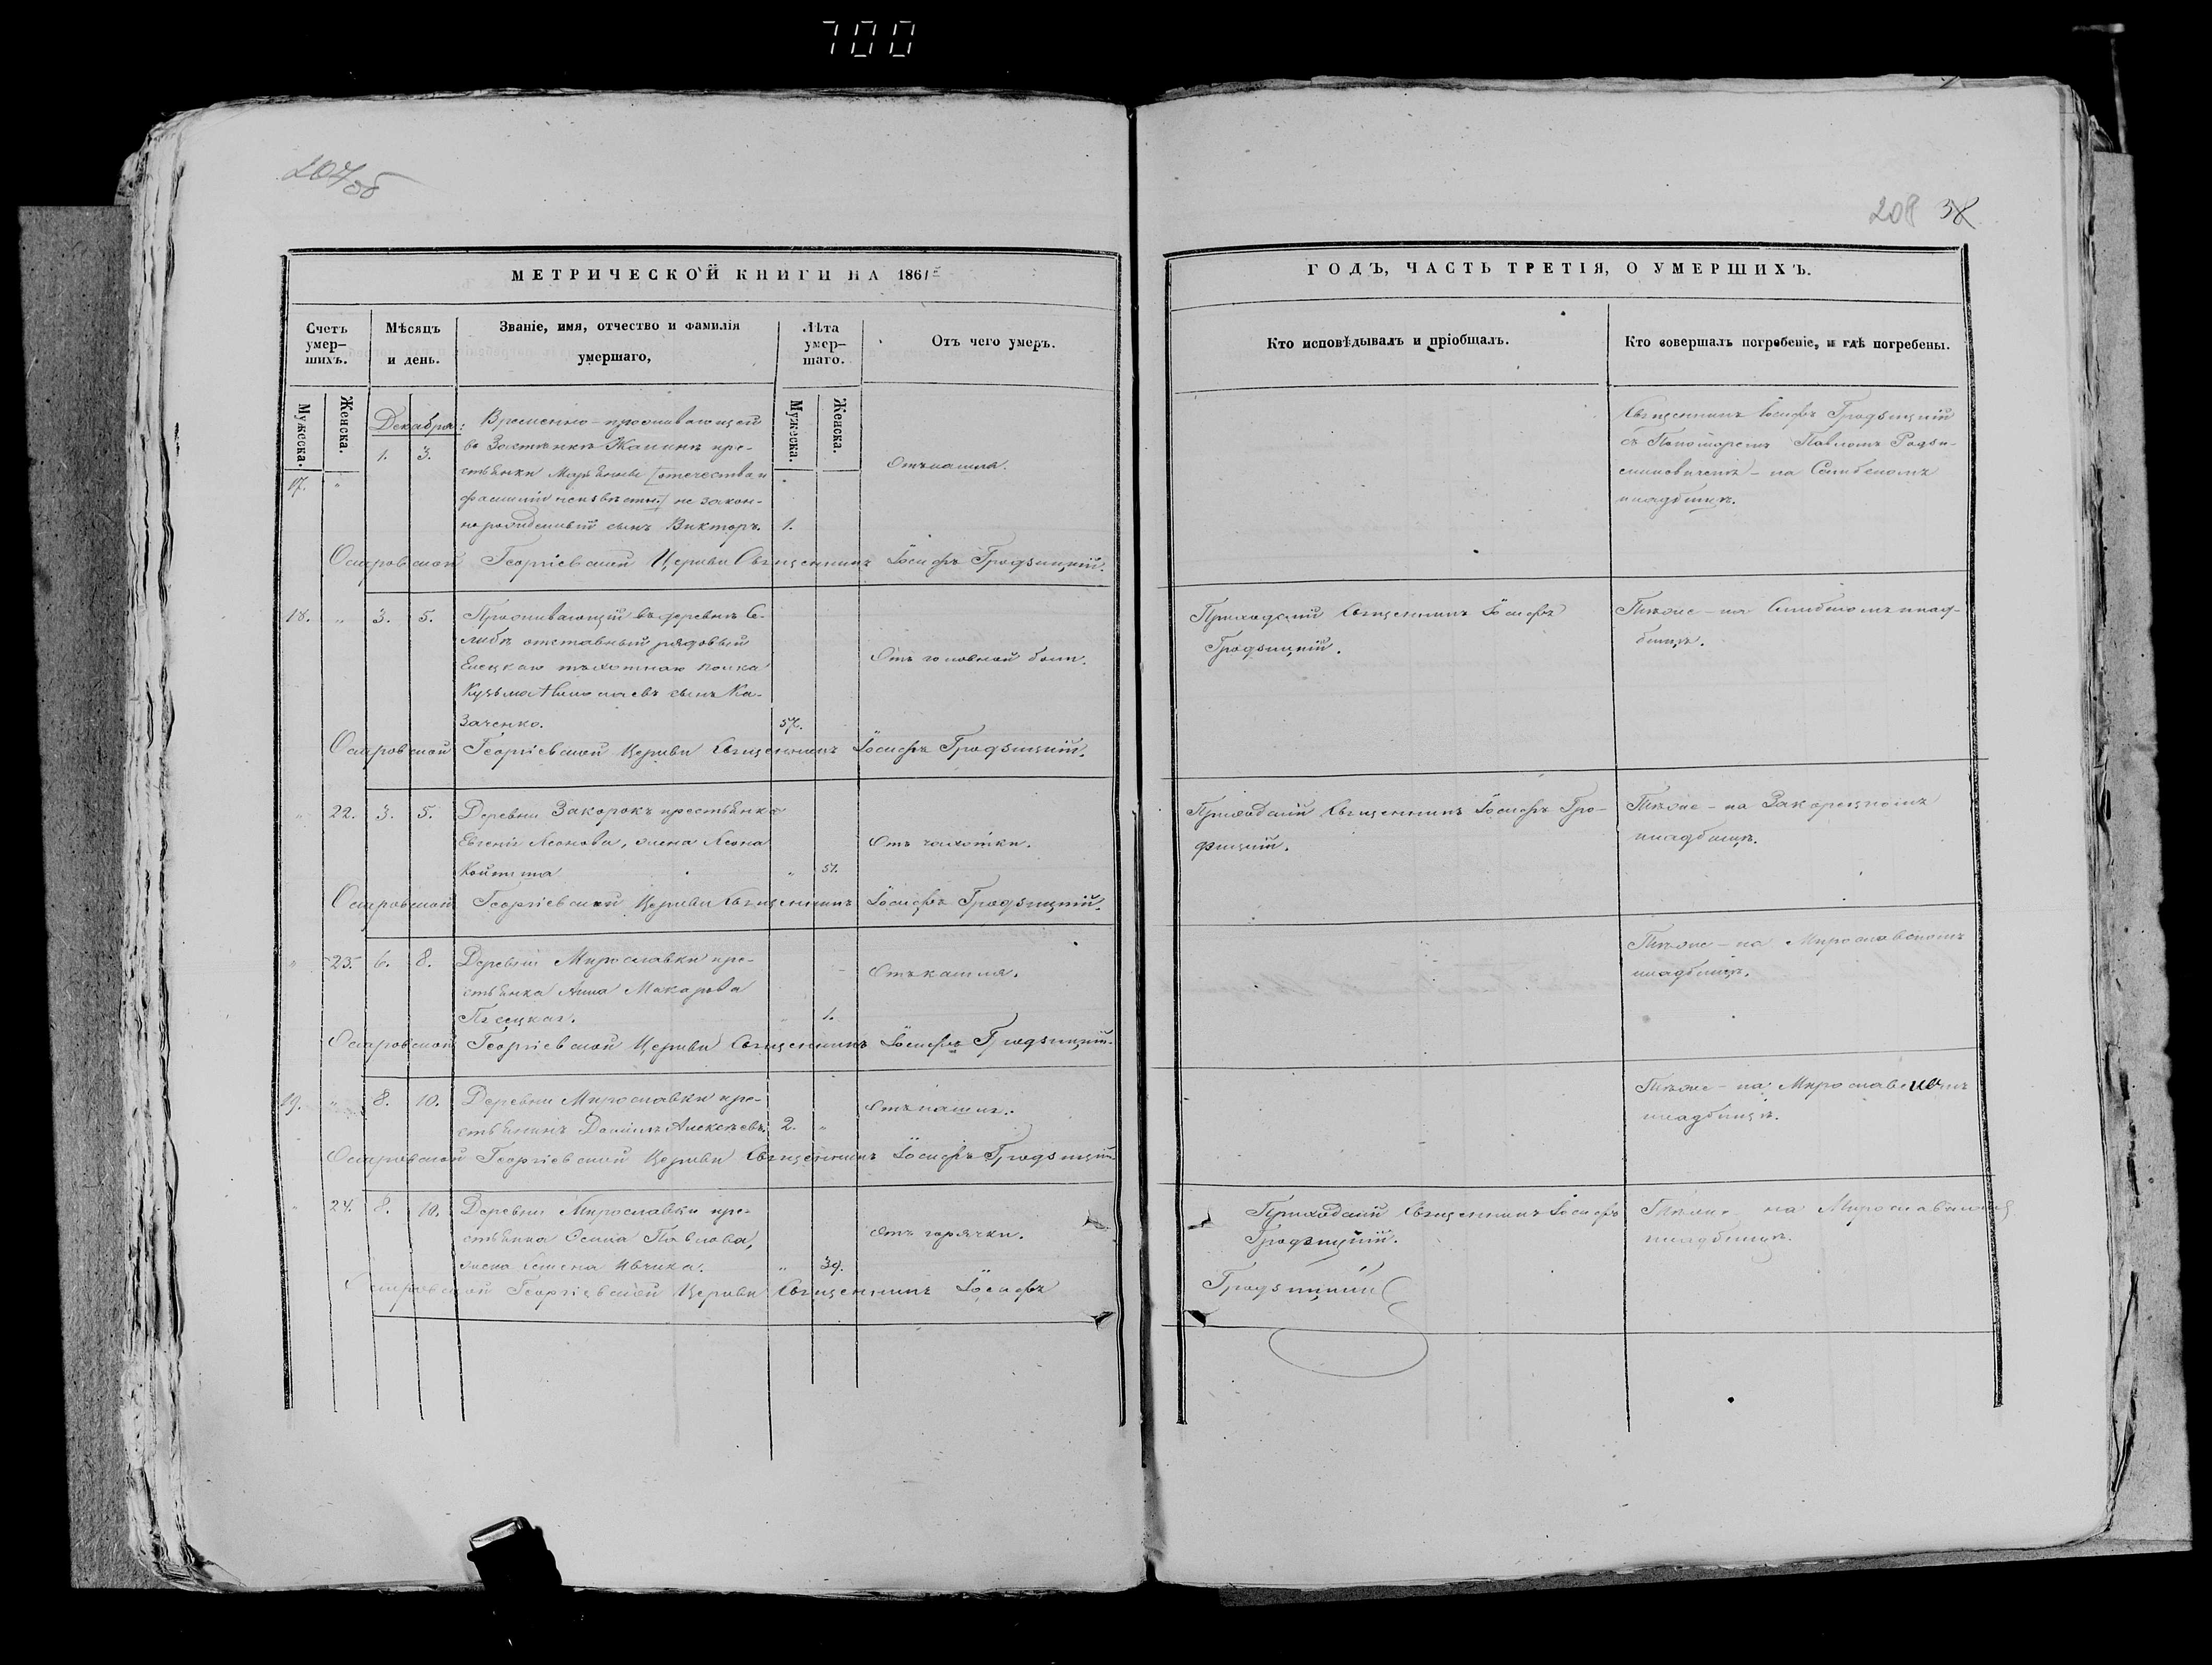 700
204об
208 38
МЕТРИЧЕСКОЙ КНИГИ НА 1861
ГОДЪ, ЧАСТЬ ТРЕТІЯ, О УМЕРШИХЪ.
Счетъ умер-
шихъ.
Мѣсяцъ
и день.
Званіе, имя, отчество и фамилія
умершаго,
Лѣта
умер-
шаго.
Отъ чего умеръ.
Кто исповѣдывалъ и пріобщалъ.
Кто совершалъ погребеніе, и гдѣ погребены.
Мужеска.
Женска.
Мужеска.
Женска.
Декабря:
17. " 1. 3.
Временно-проживающей
въ Застѣнкѣ Жалинѣ кре-
стьянки Марьяны [отечества и
фамиліи неизвѣстн.] не закон-
норожденный сынъ Викторъ. 1.
Отъ кашля.
Священникъ Іосифъ Гродзицкій
съ Пономаремъ Павломъ
на Селибскомъ
кладбищѣ.
Осаровской Георгіевской Церкви Священникъ Іосифъ Гродзицкій.
18. " 3. 5.
Проживающій въ деревнѣ Се-
либѣ отставный рядовый
Елецкаго пѣхотнаго полка
Кузьма Николаевъ сынъ Ка-
заченко. 57.
Отъ головной боли.
Приходскій Священникъ Іосифъ
Гродзицкій.
Тѣже - на Селибскомъ клад-
бищѣ.
Осаровской Георгіевской Церкви Священникъ Іосифъ Гродзицкій.
" 22. 3. 5.
Деревни Закорокъ крестьянка
Евгенія Леонова, жена Леона
" 51.
Отъ чахотки.
Приходскій Священникъ Іосифъ Гро-
дзицкій.
Тѣже - на Закорецкомъ
кладбищѣ.
Осаровской Георгіевской Церкви Священникъ Іосифъ Гродзицкій.
" 23. 6. 8.
Деревни Мирославки кре-
стьянка Анна Макарова
Пѣсецкая. " 1.
Отъ кашля.
Тѣже - на Мирославскомъ
кладбищѣ.
Осаровской Георгіевской Церкви Священникъ Іосифъ Гродзицкій.
19. " 8. 10.
Деревни Мирославки кре-
стьянинъ Даніилъ Алексѣевъ. 2. "
Отъ кашля.
Тѣже - на Мирославскомъ
кладбищѣ.
Осаровской Георгіевской Церкви Священникъ Іосифъ Гродзицкій
" 24. 8. 10.
Деревни Мирославки кре-
стьянка Павлова,
жена Семена Ивчика. " 39.
Отъ горячки.
Приходскій Священникъ Іосифъ
Гродзицкій.
Тѣже на Мирославскомъ
кладбищѣ.
Осаровской Георгіевской Церкви Священникъ Іосифъ
Гродзицкій